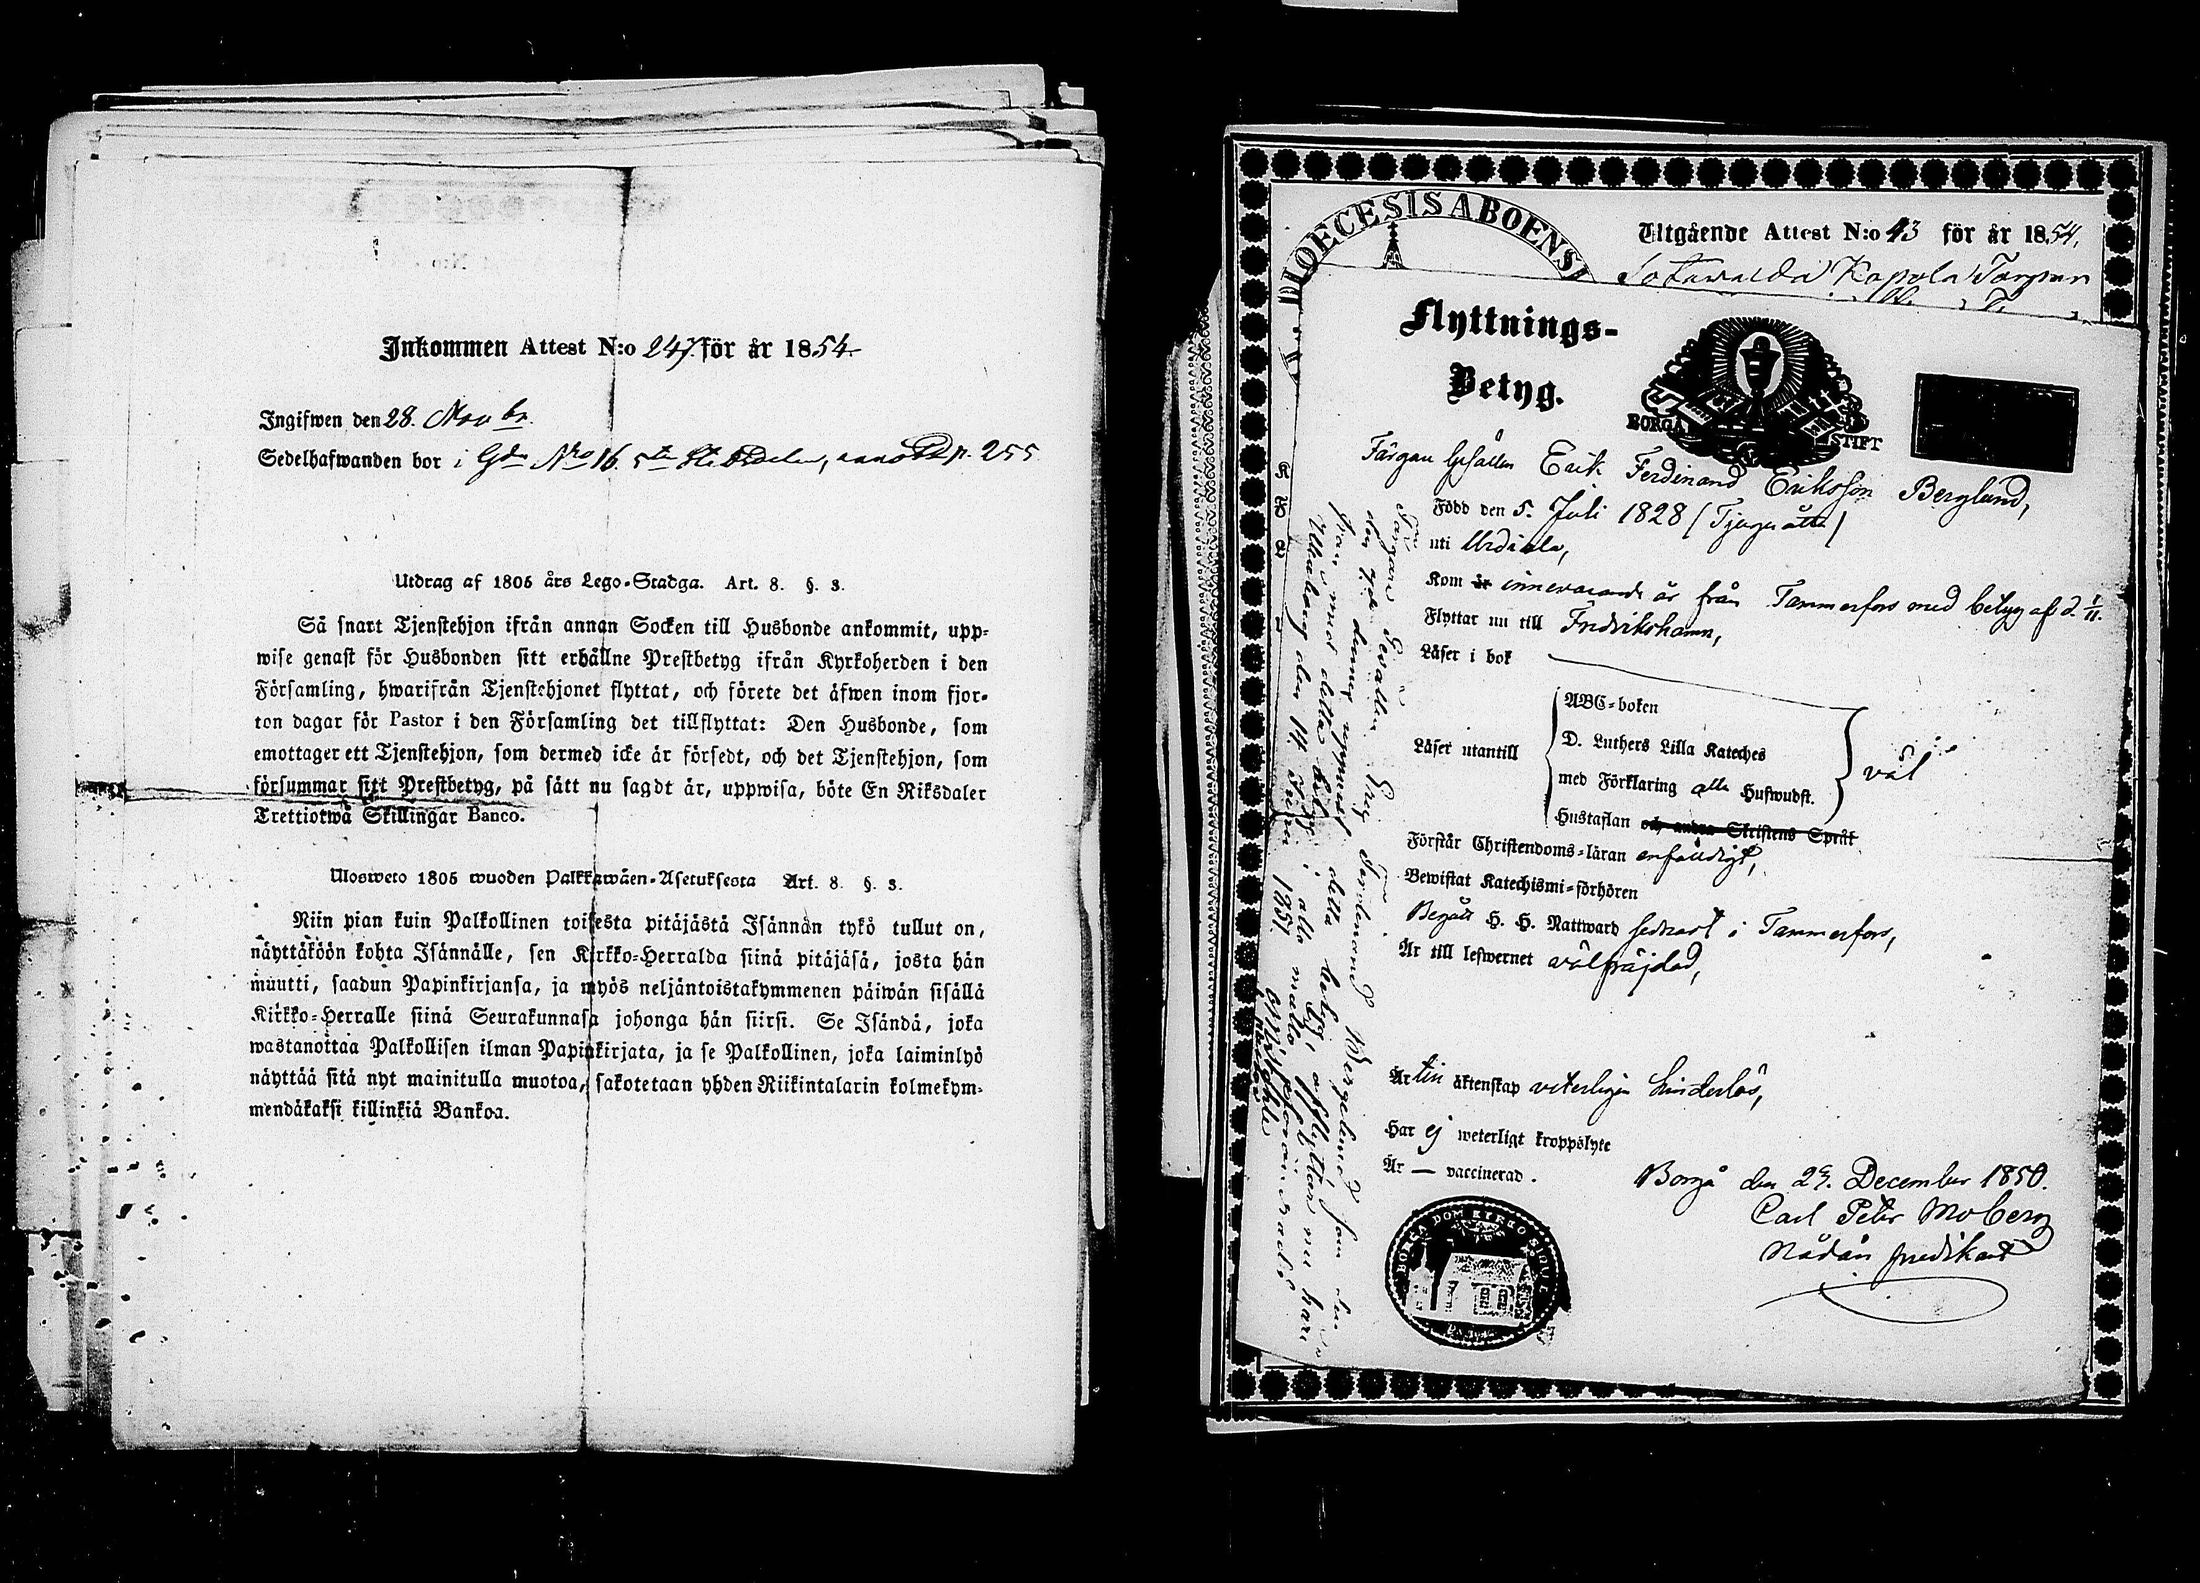 Inkommen Attest N:o 247 för år 1854.
Ingifwen den 28. Novbr.
Sedelhafwanden bor i Gdn Nro 16. 5te Stadsdelen, p. 255
Utdrag af 1805 års Lego-Stadga. Art. 8. §. 3.
Så snart Tjenstehjon ifrån annan Socken till Husbonde ankommit, upp-
wise genast för Husbonden sitt erhållne Prestbetyg ifrån Kyrkoherden i den
Församling, hwarifrån Tjenstehjonet flyttat, och förete det äfwen inom fjor-
ton dagar för Pastor i den Församling det tillflyttat: Den Husbonde, som
emottager ett Tjenstehjon, som dermed icke är försedt, och det Tjenstehjon, som
försummar sitt Prestbetyg, på sätt nu sagdt är, uppwisa, böte En Riksdaler
Trettiotwå Skillingar Banco.
Ulosweto 1805 wuoden Palkkawäen-Asetuksesta Art. 8. §. 3.
Niin pian kuin Palkollinen toisesta pitäjästä Isännän tykö tullut on,
näyttäköön kohta Isännälle, sen Kirkko-Herralda siinä pitäjäsä, josta hän
muutti, saadun Papinkirjansa, ja myös neljäntoistakymmenen päiwän sisällä
Kirkko-Herralle siinä Seurakunnasa johonga hän siirsi. Se Isändä, joka
wastanottaa Palkollisen ilman Papinkirjata, ja se Palkollinen, joka laiminlyö
näyttää sitä nyt mainitulla muotoa, sakotetaan yhden Riikintalarin kolmekym-
mendäkaksi killinkiä Bankoa.
DIOECESIS ABOENSI
Utgående Attest N:o 43 för år 1854.
Kapola Torpar
Flyttnings-
Betyg.
BORGÅ STIFT
Färgare Gesällen Erik Ferdinand Eriksson Berglund,
Född den 5. Juli 1828 (Tjuguåtta)
uti Urdiala,
Kom är innevarande år från Tammerfors med betyg af d. 1/11.
Flyttar nu till Fredrikshamn,
Läser i bok
Läser utantill
ABC-boken
D. Luthers Lilla Kateches
med Förklaring alla Hufwudst.
Hustaflan och andra Skriftens Språk
väl
Förstår Christendoms-läran enfaldigt,
Bewistat Katechismi-förhören
Begått H. H. Nattward sednast i Tammerfors,
Är till lefwernet välfräjdad,
Är till äktenskap veterligen hinderlös,
Har ej weterligt kroppslyte
Är — vaccinerad.
Borgå den 29. December 1850.
Carl Peter Moberg
Nådårs predikant
BORGÅ DOMKYRKO
Färgare Gesällen Erik Ferdinand Bergelund, som den
den denna uppmist detta betyg, afflyttar nu här
från mot detta
Wiborg den 14. Juni 1851.